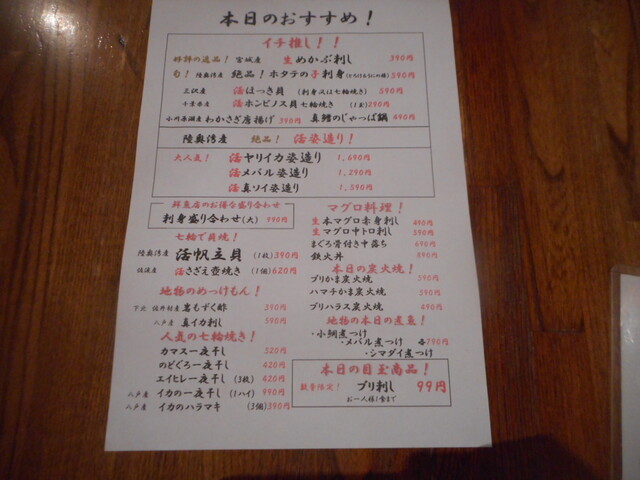 本日のおすすめ！
イチ推し！！
好評の逸品！ 宮城産 生めかぶ刺し 390円
陸奥湾産 絶品！ホタテの子刺身 590円
三沢産 活ほっき貝 (刺身又は七輪焼き) 590円
千葉県産 活ホンビノス貝七輪焼き (1ヶ)290円
小川原湖産 わかさぎ唐揚げ 390円 真鱈のじゃっぱ鍋 490円
陸奥湾産 絶品！ 活姿造り！
大人気！ 活ヤリイカ姿造り 1,690円
活メバル姿造り 1,290円
活真ソイ姿造り 1,590円
鮮魚店のお得な盛り合わせ
刺身盛り合わせ(大) 990円
七輪で貝焼！
陸奥湾産 活帆立貝 (1枚)390円
活さざえ壺焼き (1個)620円
地物のめっけもん！
岩もずく酢 390円
八戸産 真イカ刺し 590円
人気の七輪焼き！
カマス一夜干し 520円
のどぐろ一夜干し 420円
エイヒレ一夜干し (3枚) 420円
八戸産 イカの一夜干し (1ハイ) 990円
八戸産 イカのハラマキ (3個)390円
マグロ料理！
生本マグロ赤身刺し 490円
生マグロ中トロ刺し 590円
まぐろ骨付き中落ち 690円
鉄火丼 890円
本日の炭火焼！
ブリかま炭火焼 590円
ハマチかま炭火焼 390円
ブリハラス炭火焼 490円
地物の本日の煮魚！
・小鯛煮つけ
・メバル煮つけ 各790円
・シマダイ煮つけ
本日の目玉商品！
数量限定！ ブリ刺し 99円
お一人様1食まで